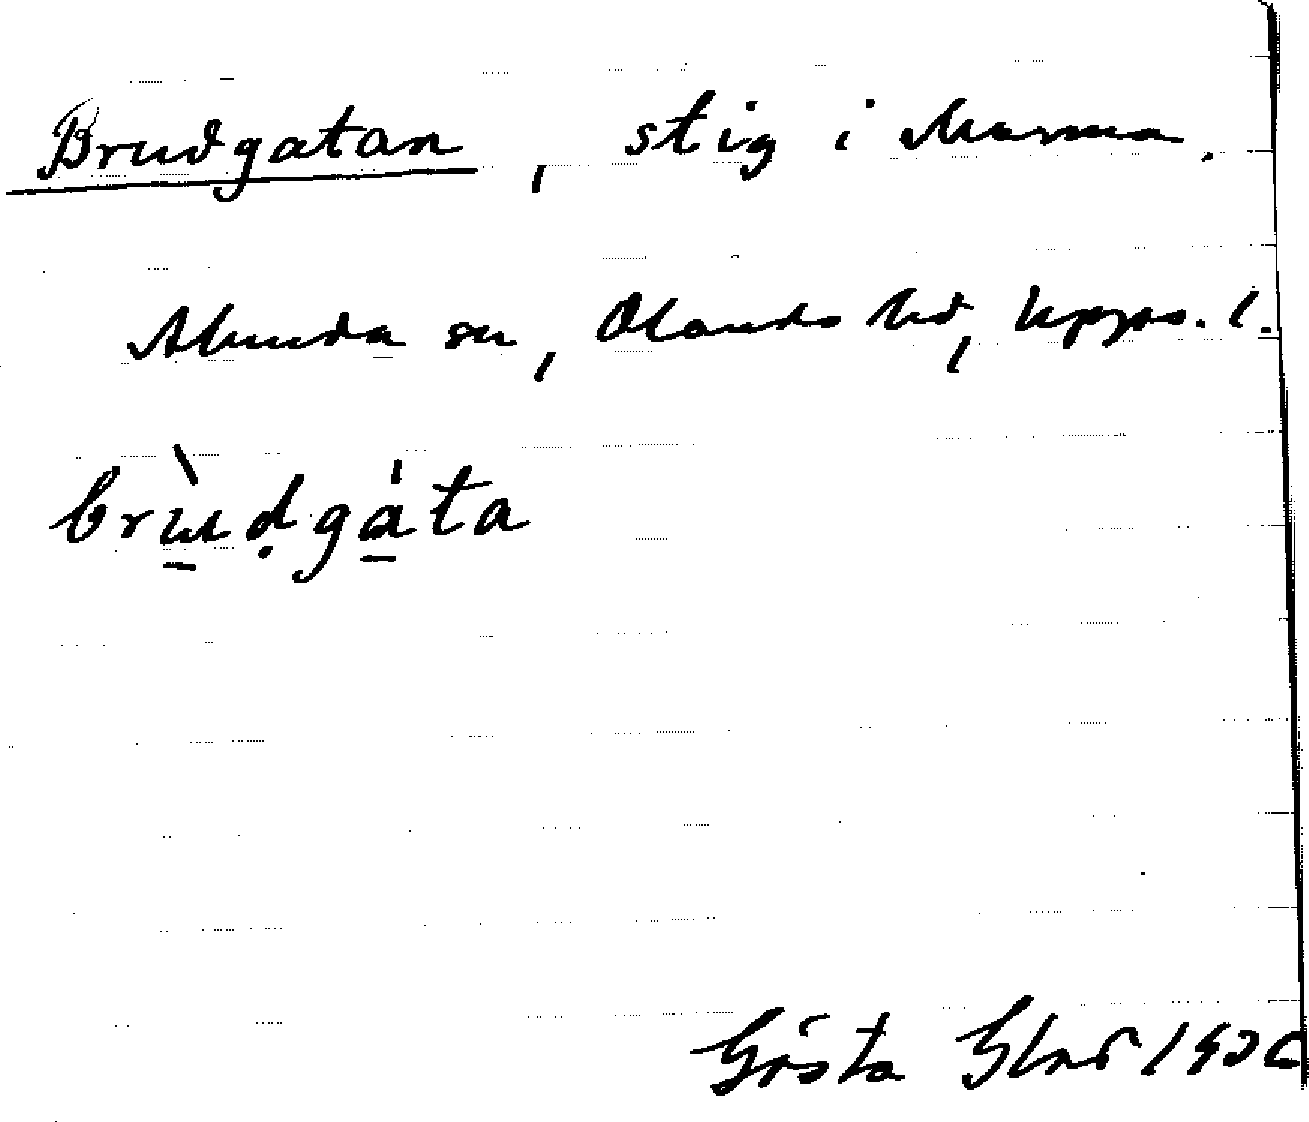 Brudgatan, stig i Marma.
Alunda sn, Olands hd, Upps. l.
brùdgata
Gösta